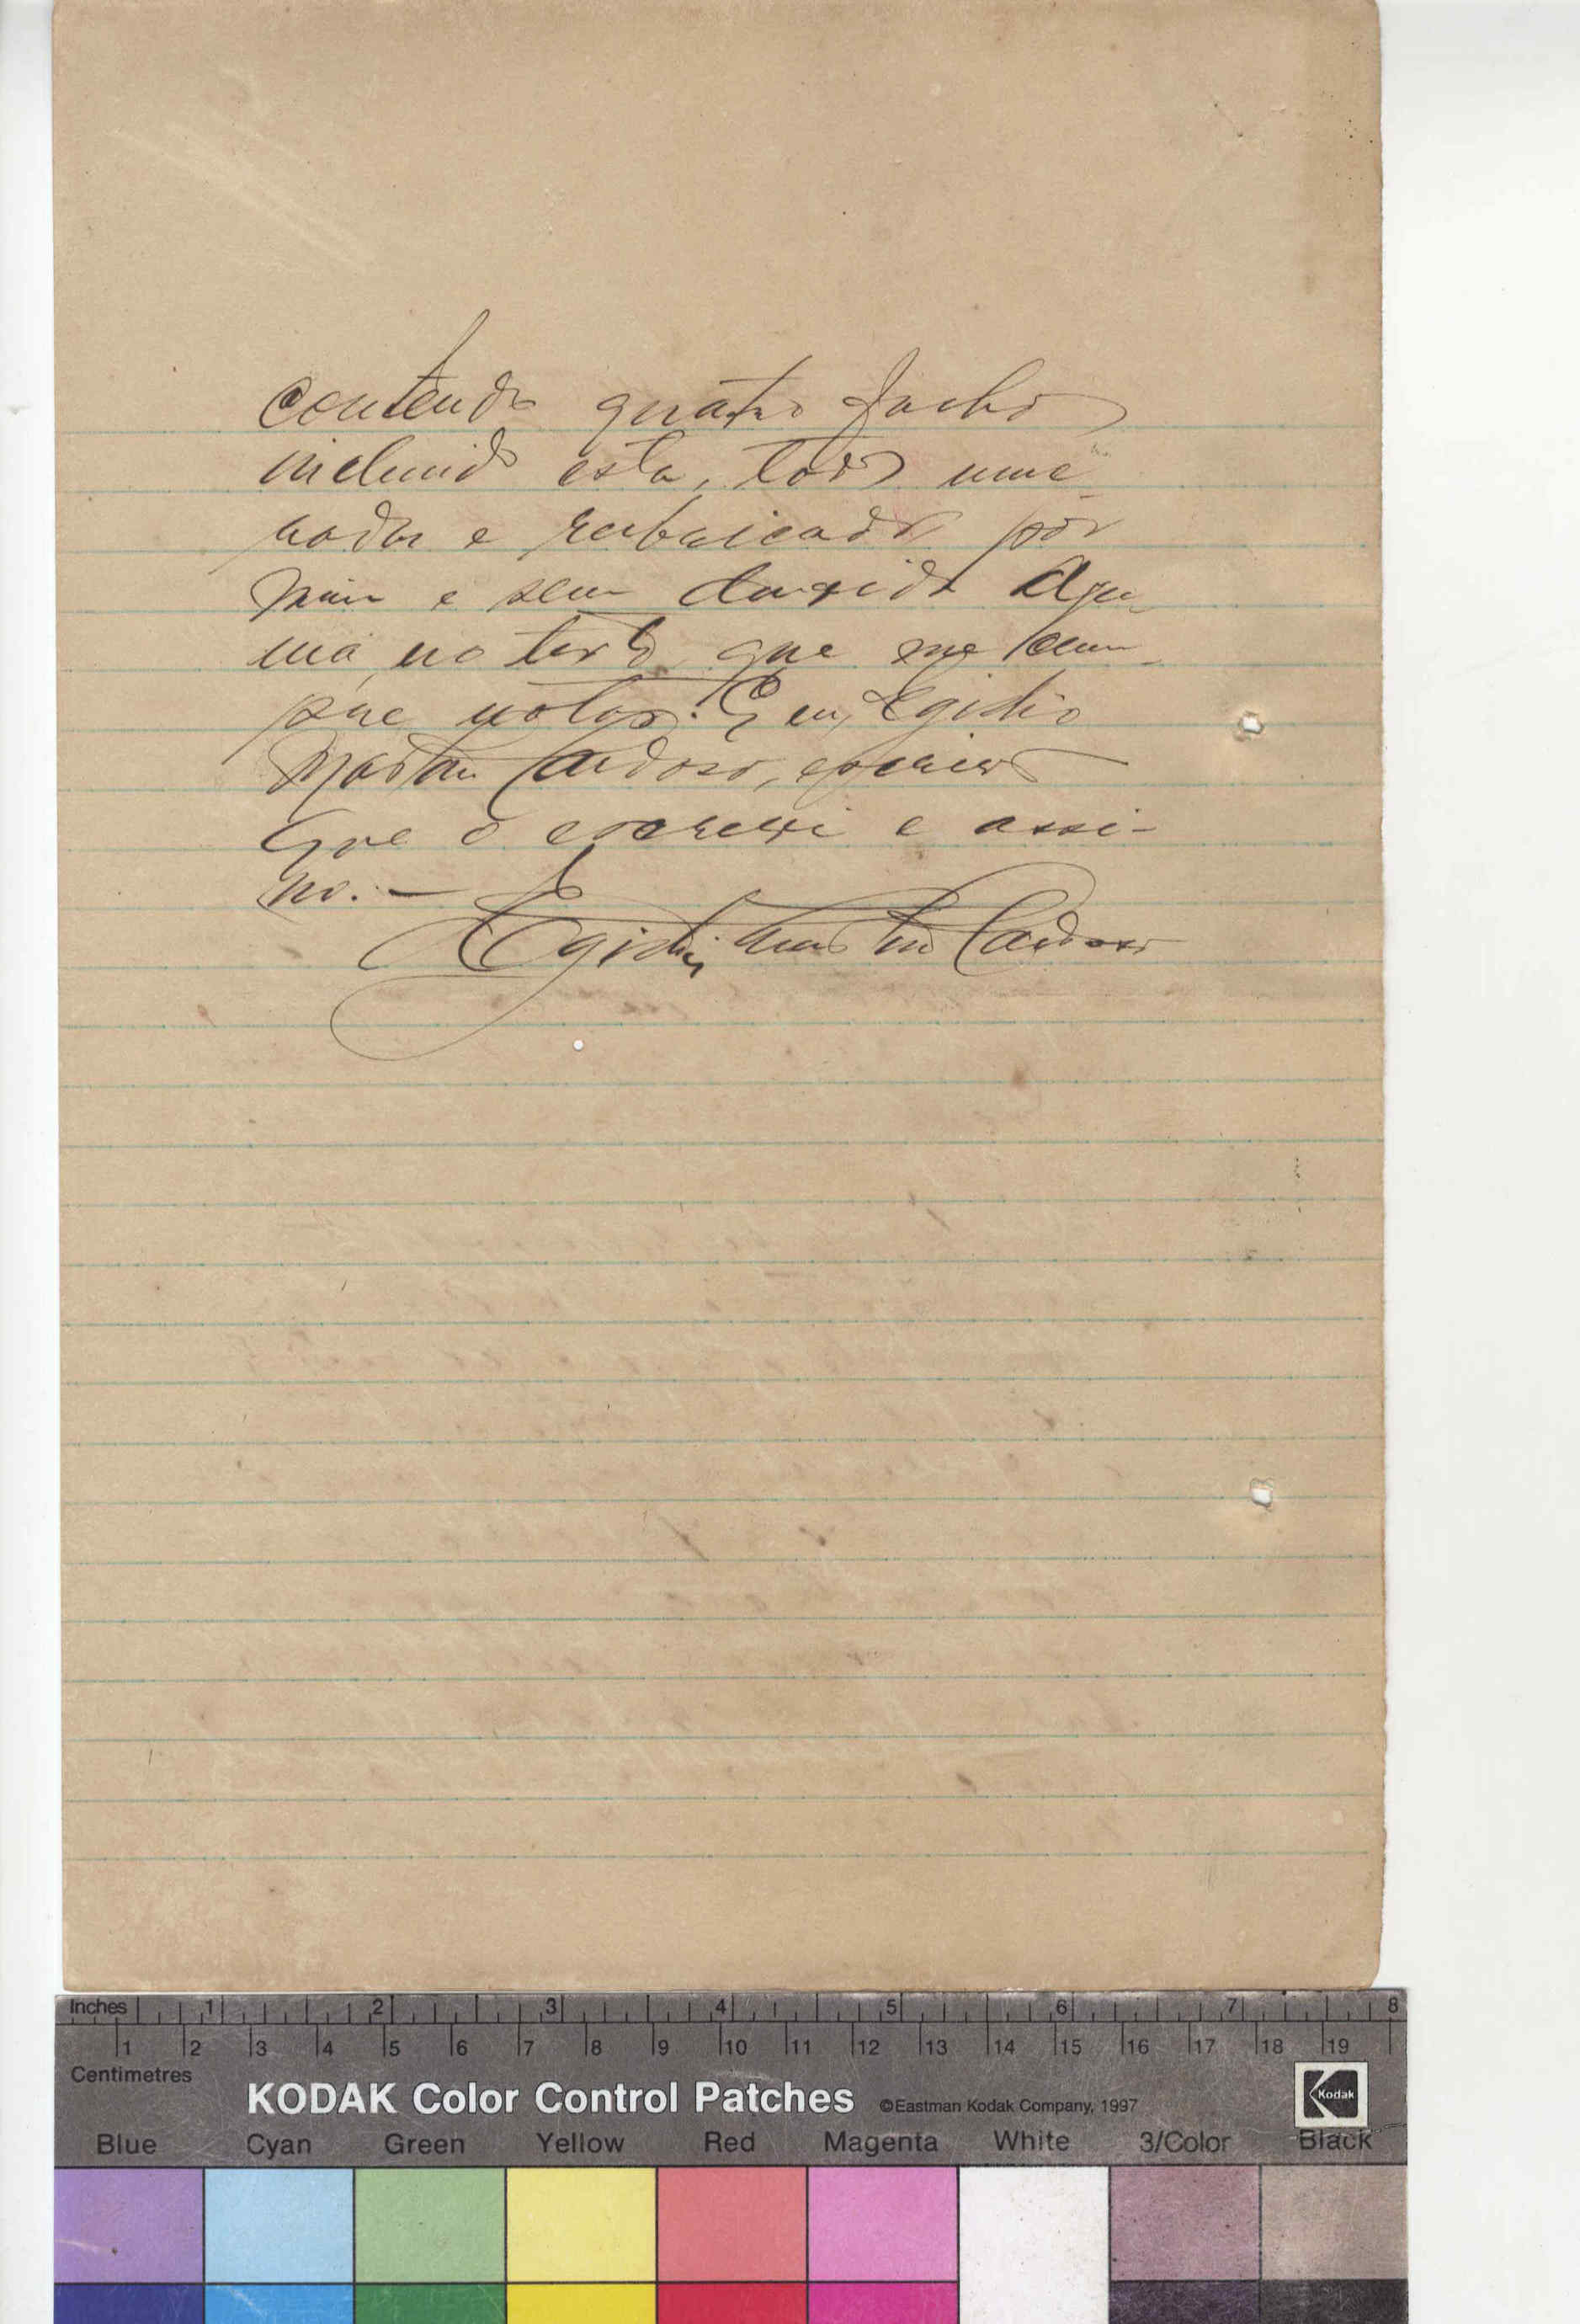 contendo quatro folhas
incluindo esta, todas nume-
radas e rubricadas por
mim e sem duvida algu-
ma, no texto que me cum-
pre notar. E eu, Egidio
Martins Cardoso, escrivão
que o escrevi e assi-
no. —
Egidio Martins Cardoso
Inches 1 2 3 4 5 6 7 8
1 2 3 4 5 6 7 8 9 10 11 12 13 14 15 16 17 18 19
Centimetres
KODAK Color Control Patches ©Eastman Kodak Company, 1997 Kodak
Blue Cyan Green Yellow Red Magenta White 3/Color Black